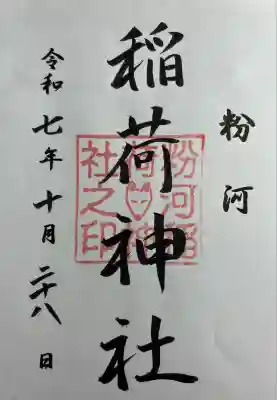 粉河
稲荷神社
令和七年十月二十八日
粉河稲
荷神
社之印